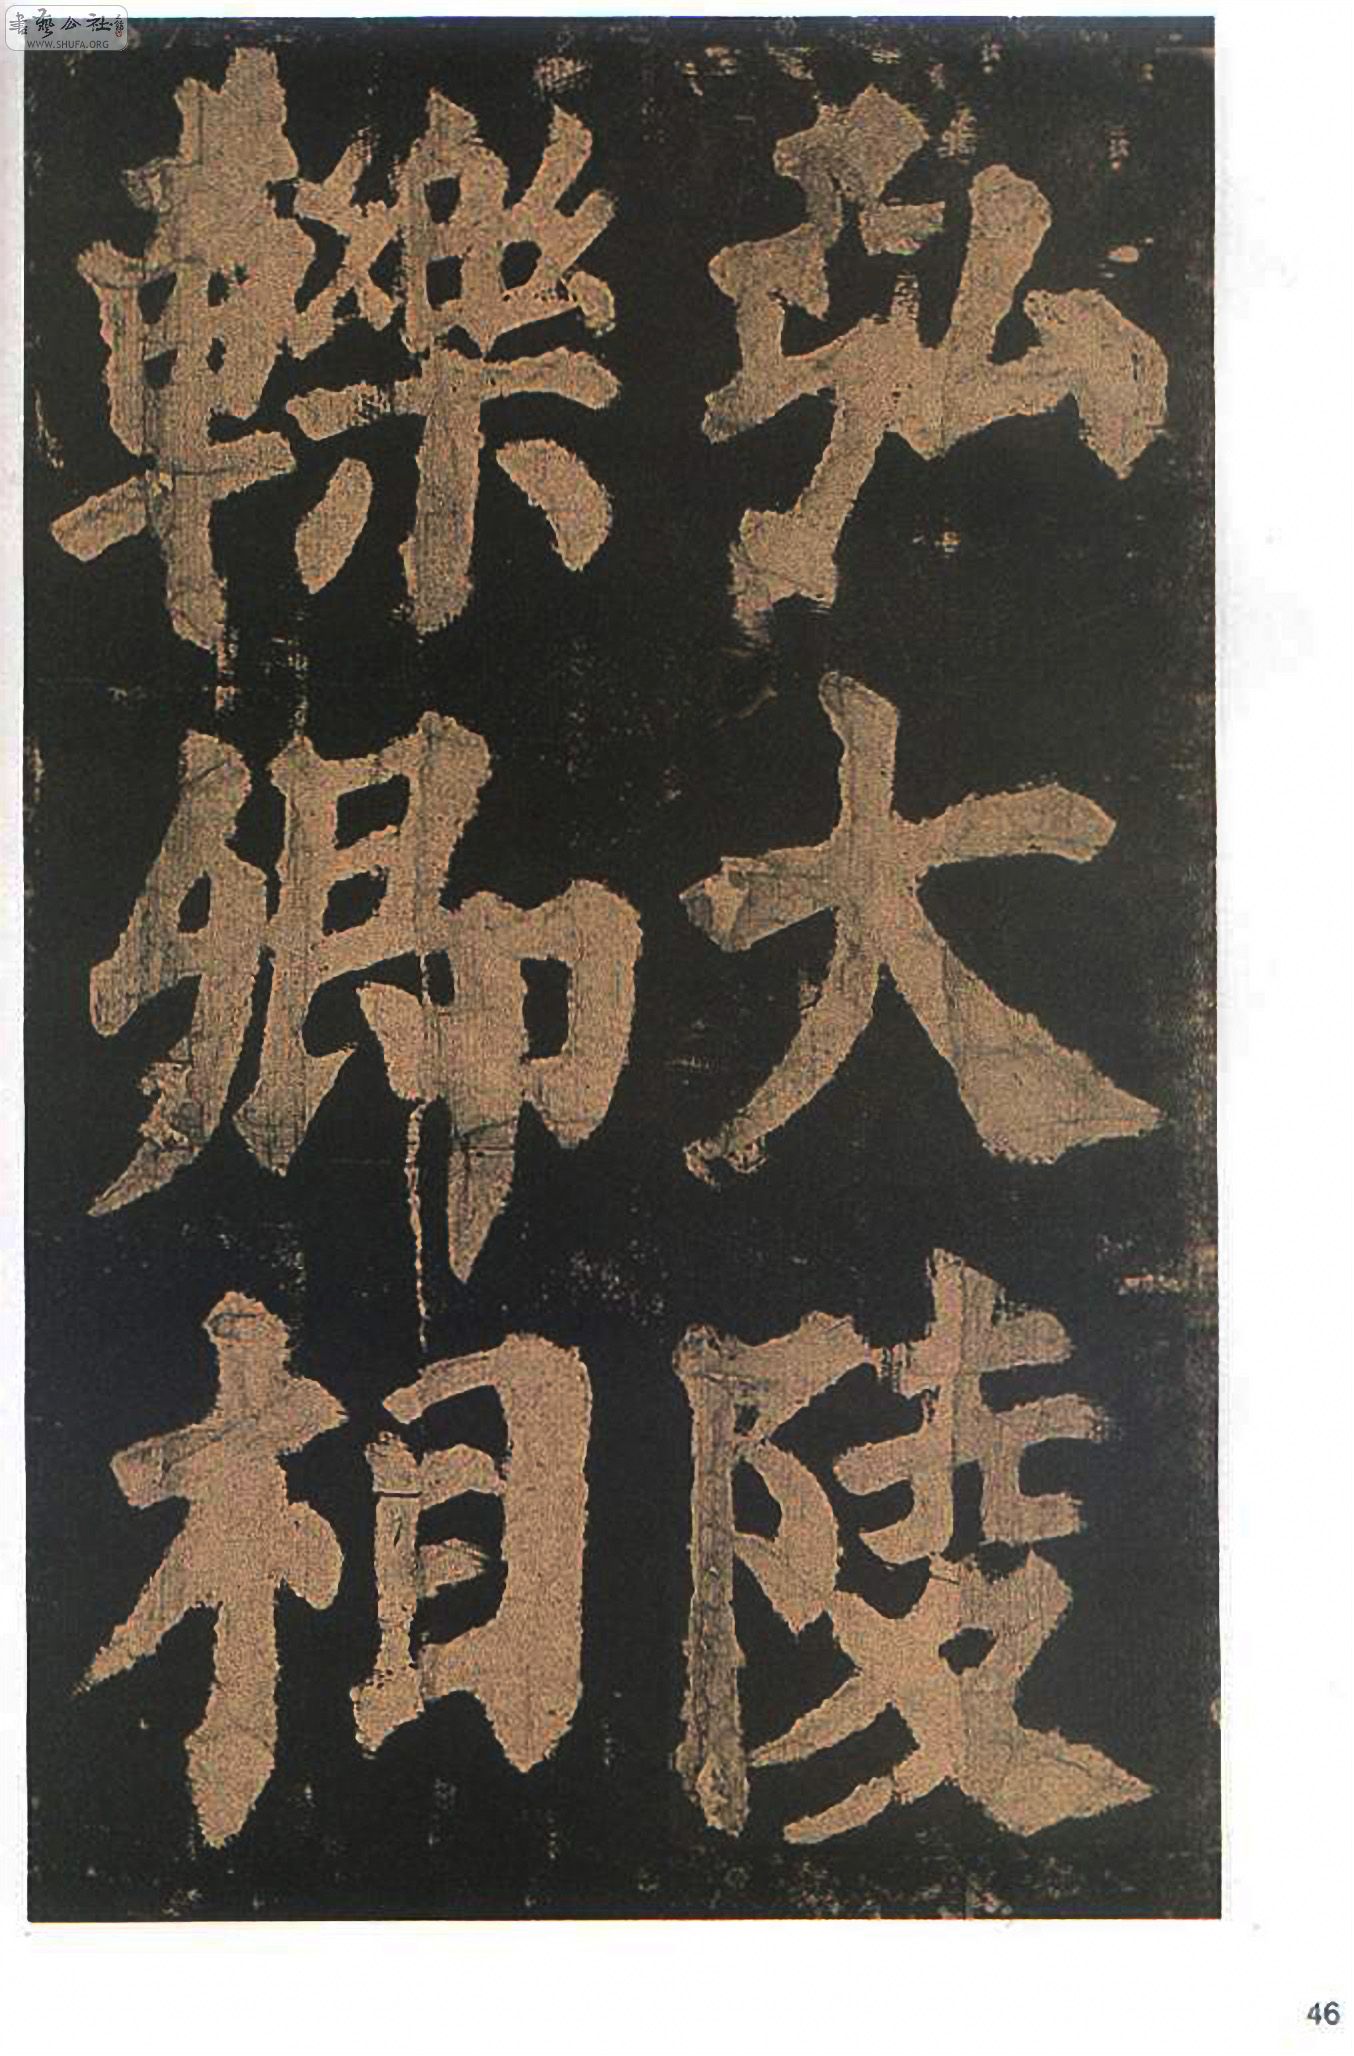 書藝公社
WWW.SHUFA.ORG
弘大陵
轢卿相
46